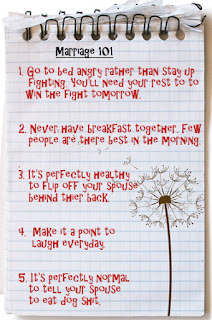 Marriage 101
1. Go to bed angry rather than stay up
fighting. You'll need your rest to to
win the fight tomorrow.
2. Never have breakfast together. Few
people are there best in the morning.
3. It's perfectly healthy
to flip off your spouse
behind thier back.
4. Make it a point to
laugh everyday.
5. It's perfectly normal
to tell your spouse
to eat dog shit.